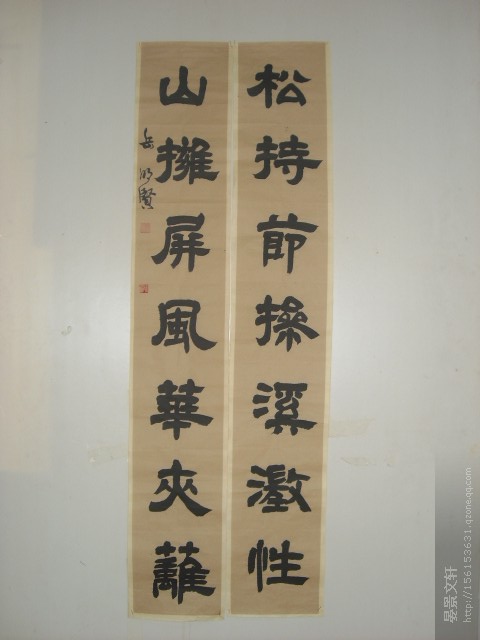 松持節操溪澂性
山擁屏風華夾籬
岳明賢
晏景文轩
http://156153631.qzone.qq.com